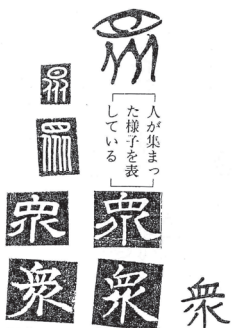 人が集まっ
た様子を表
している
衆
衆
衆
衆
衆